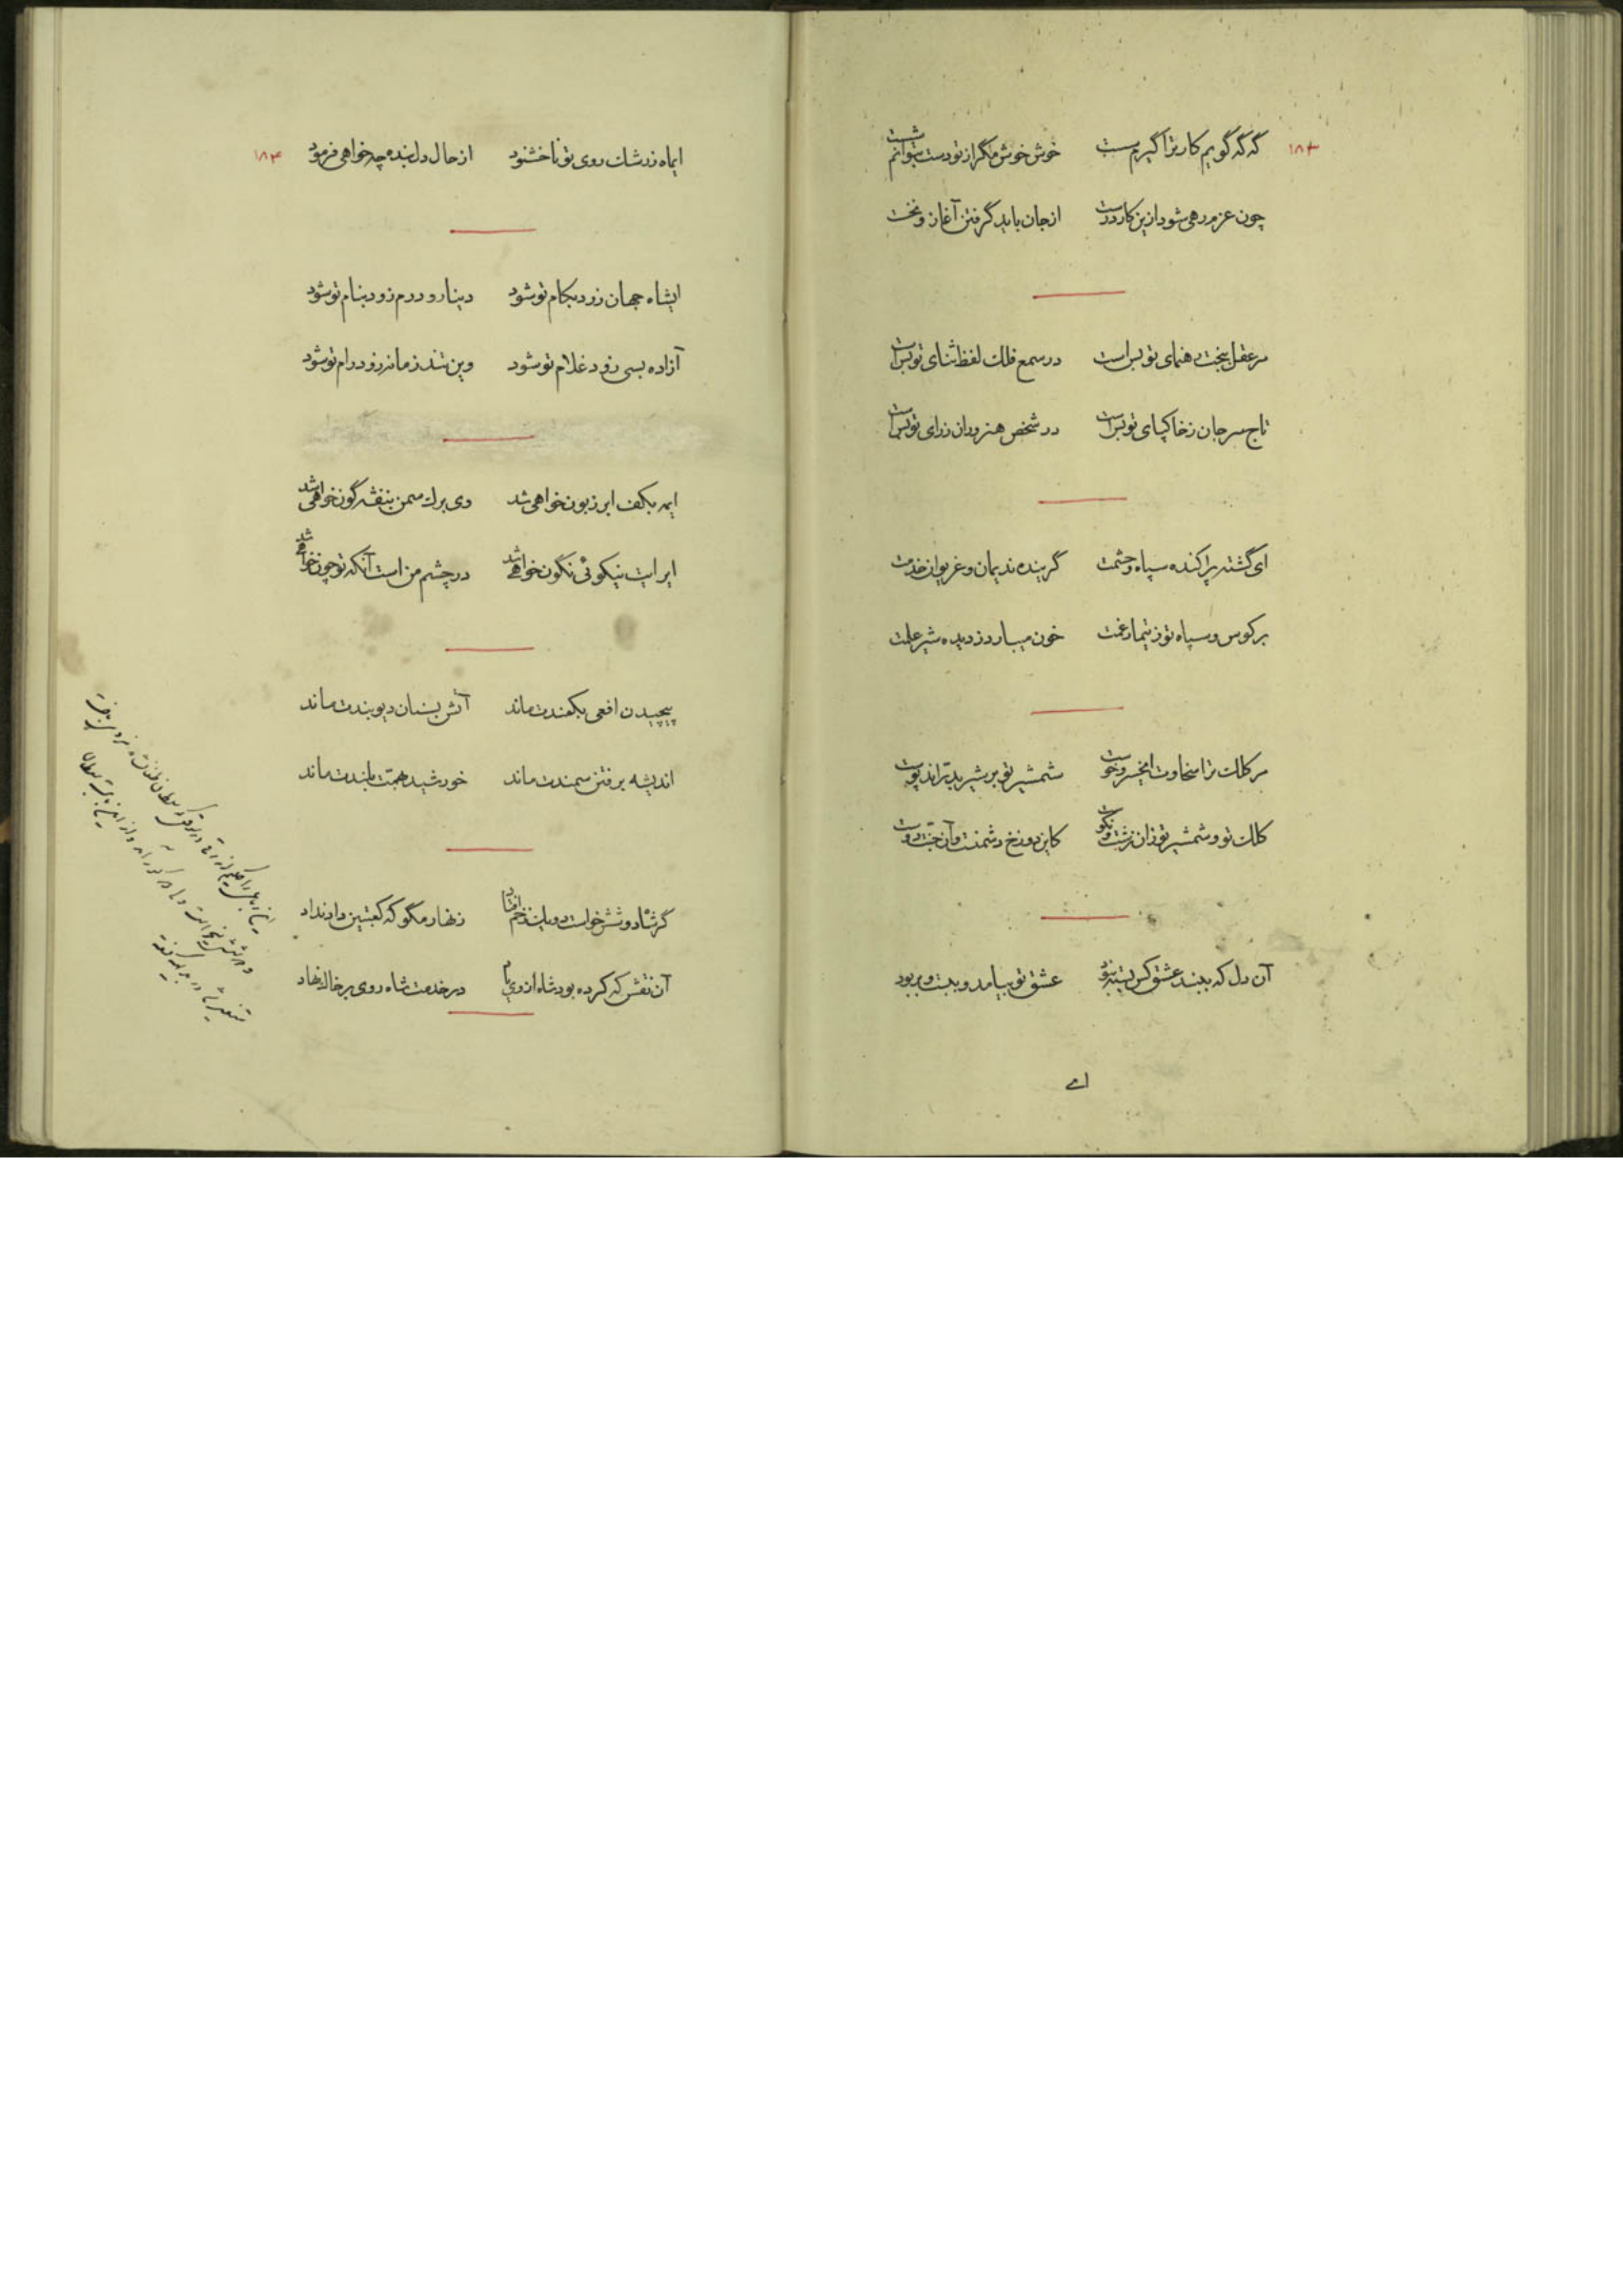 ۱۸۳
گه گه گویم کار ترا گیرم سست خوش خوش مگر از تو دست بتوانم شست
چون عزم رهی شود ازین کار درست از جان باید گرفتن آغاز و نخست
مر عقل بخت رهنمای تو بس است در سمع فلک لفظ ثنای تو بس است
تاج سر جان ز خاکپای تو بس است در شخص هنر روان ز رای تو بس است
ای گشته پراکنده سپاه و حشمت گرینده ندیمان و غریوان خدمت
بر کوس و سپاه تو ز تیمار غمت خون میبارد ز دیده شیر علمت
مر کلک ترا سخاوت ایخسرو خوست شمشیر تو بر شیر بدراند پوست
کلک تو و شمشیر تو زان زشت و نکوست کاین دوزخ دشمنت و آن جنت دوست
آن دل که ببند عشق کس بسته نبود عشق تو بیامد و ببست و بربود
اے
۱۸۴
ایماه ز رشک روی تو ناخشنود از حال دل بنده چه خواهی فرمود
ایشاه جهان زود بکام تو شود دینار و درم زود بنام تو شود
آزاده بسی زود غلام تو شود وین تند زمانه زود رام تو شود
ایمه بکف ابر زبون خواهی شد وی برک سمن بنفشه گون خواهی شد
ایرایت نیکوئی نگون خواهی شد در چشم من است آنکه تو چون خواهی شد
پیچیدن افعی بکمندت ماند آتش بسنان دیوبندت ماند
اندیشه برفتن سمندت ماند خورشید همت بلندت ماند
گر شاه دو شش خواست دو یک زخم افتاد زنهار مگو که کعبتین داد نداد
آن نقش که کرده بود شاه از وی یاد در خدمت شاه روی بر خاک نهاد